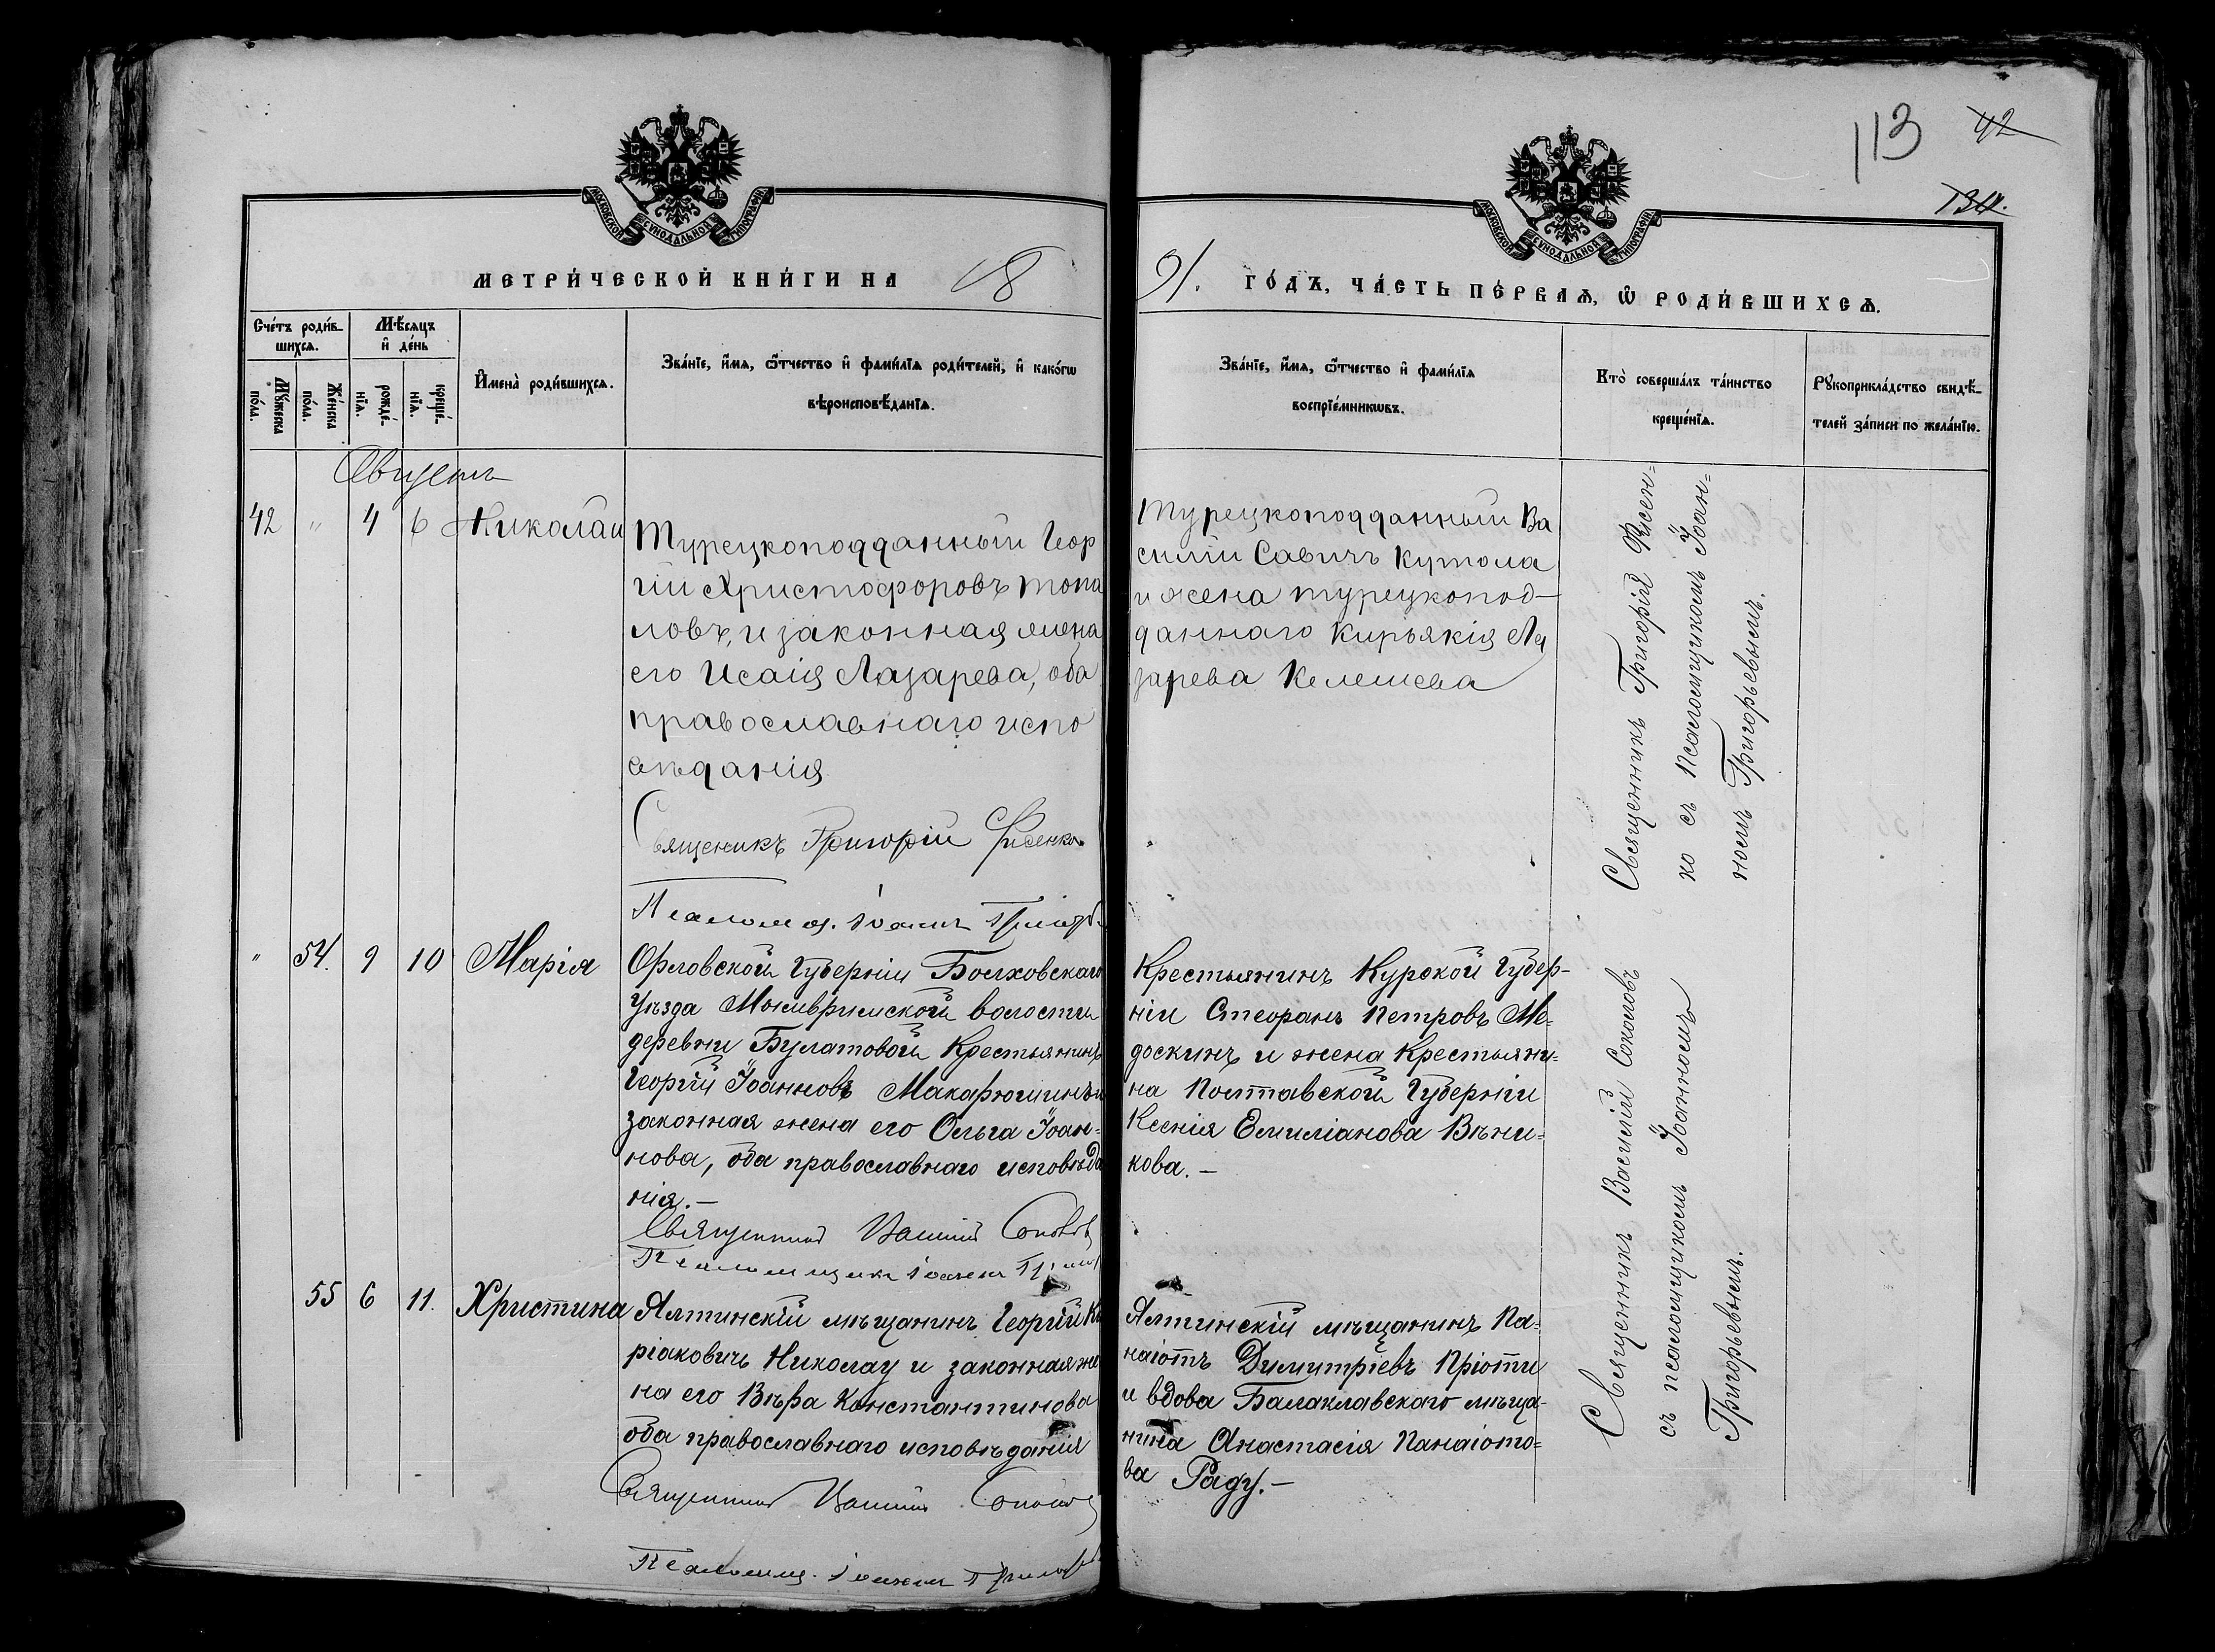 113 42
134.
МОСКОВСКОЙ СѴНОДАЛЬНОЙ ТИПОГРАФІИ
МОСКОВСКОЙ СѴНОДАЛЬНОЙ ТИПОГРАФІИ
МЕТРИ́ЧЕСКОЙ КНИ́ГИ НА 18
91. ГО́ДЪ, ЧА́СТЬ ПЕ́РВАѦ, Ѡ҆ РОДИ́ВШИХСѦ.
Сче́тъ роди́в-
шихсѧ.
Мꙋ́жеска
по́ла.
Же́нска
по́ла.
Мѣ́сѧцъ
и҆ де́нь
рожде́-
нїѧ.
креще́-
нїѧ.
И҆мена̀ роди́вшихсѧ.
Зва́нїе, и҆́мѧ, ѻ҆́тчество и҆ фами́лїѧ роди́телей, и҆ како́гѡ
вѣроисповѣ́данїѧ.
Зва́нїе, и҆́мѧ, ѻ҆́тчество и҆ фами́лїѧ
воспрїе́мникѡвъ.
Кто̀ соверша́лъ та́инство
креще́нїѧ.
Рꙋкоприкла́дство свидѣ́-
телей за́писи по жела́нїю.
Августъ
42 " 4 6 Николай
Турецкоподданный Геор
гій Христофоровъ Топа
ловъ, и законная жена
его Исаія Лазарева, оба
православнаго испо
вѣданія
Священикъ Григорій Фисенко
Псаломщ. Іоаннъ Григорь
Турецкоподданный Ва
силій Савичъ Кутола
и жена турецкопод-
даннаго Кирьякія Ла
зарева Келешева
Священникъ Григорій Фисен-
ко съ псаломщикомъ Іоан-
номъ Григорьевымъ.
" 54. 9 10 Марія
Орловской Губерніи Болховскаго
уѣзда волости
деревни Булатовой Крестьянинъ
Георгій Іоанновъ Макарюшинъ и
законная жена его Ольга Іоан-
нова, оба православнаго исповѣда
нія.-
Священникъ Василій Соколовъ
Псаломщикъ Іоаннъ Григ
Крестьянинъ Курской Губер-
ніи Стефанъ Петровъ Ме-
доскинъ и жена Крестьяни-
на Полтавской Губерніи
Ксенія Емиліанова Вѣни-
кова.-
Священникъ Василій Соколовъ
съ псаломщикомъ Іоанномъ
Григорьевымъ.
55 6 11. Христина
Ялтинскій мѣщанинъ Георгій Ки
ріаковичъ Николау и законная же
на его Вѣра Константинова
оба православнаго исповѣданія
Священникъ Василій Соколовъ
Псаломщ. Іоаннъ Григорь
Ялтинскій мѣщанинъ Па-
наіотъ Димитріевъ Пріоти
и вдова Балаклавскаго мѣща-
нина Анастасія Панаіото-
ва Раду.-